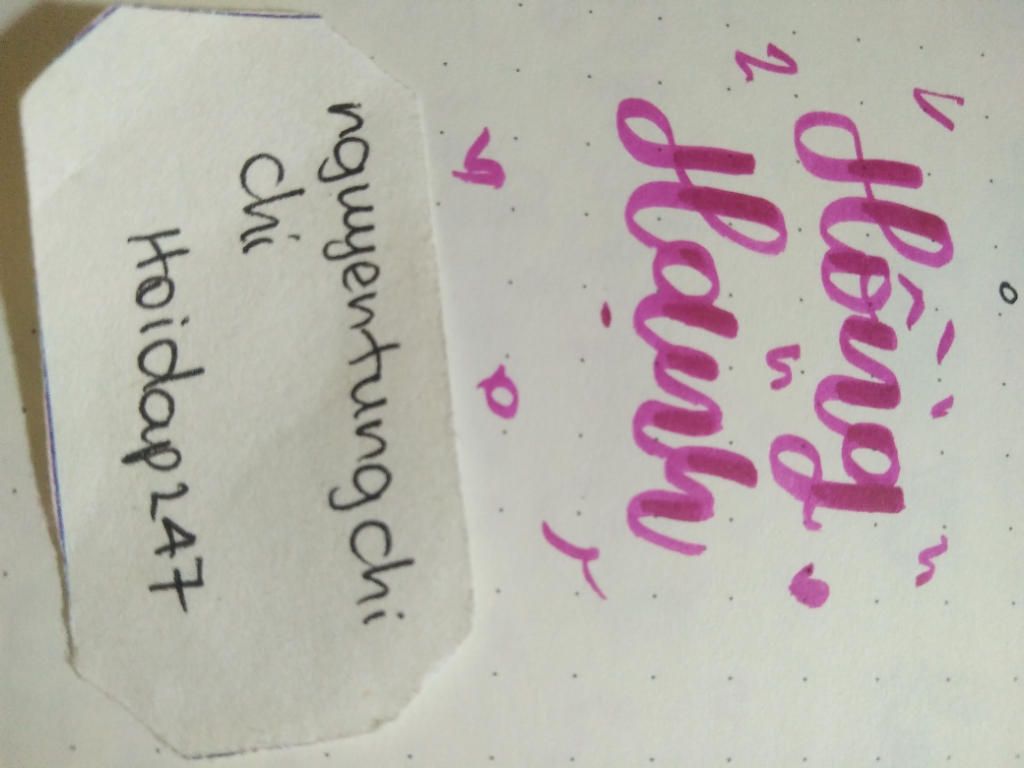 Hồng
Hạnh
nguyentungchi
chi
Hoidap247